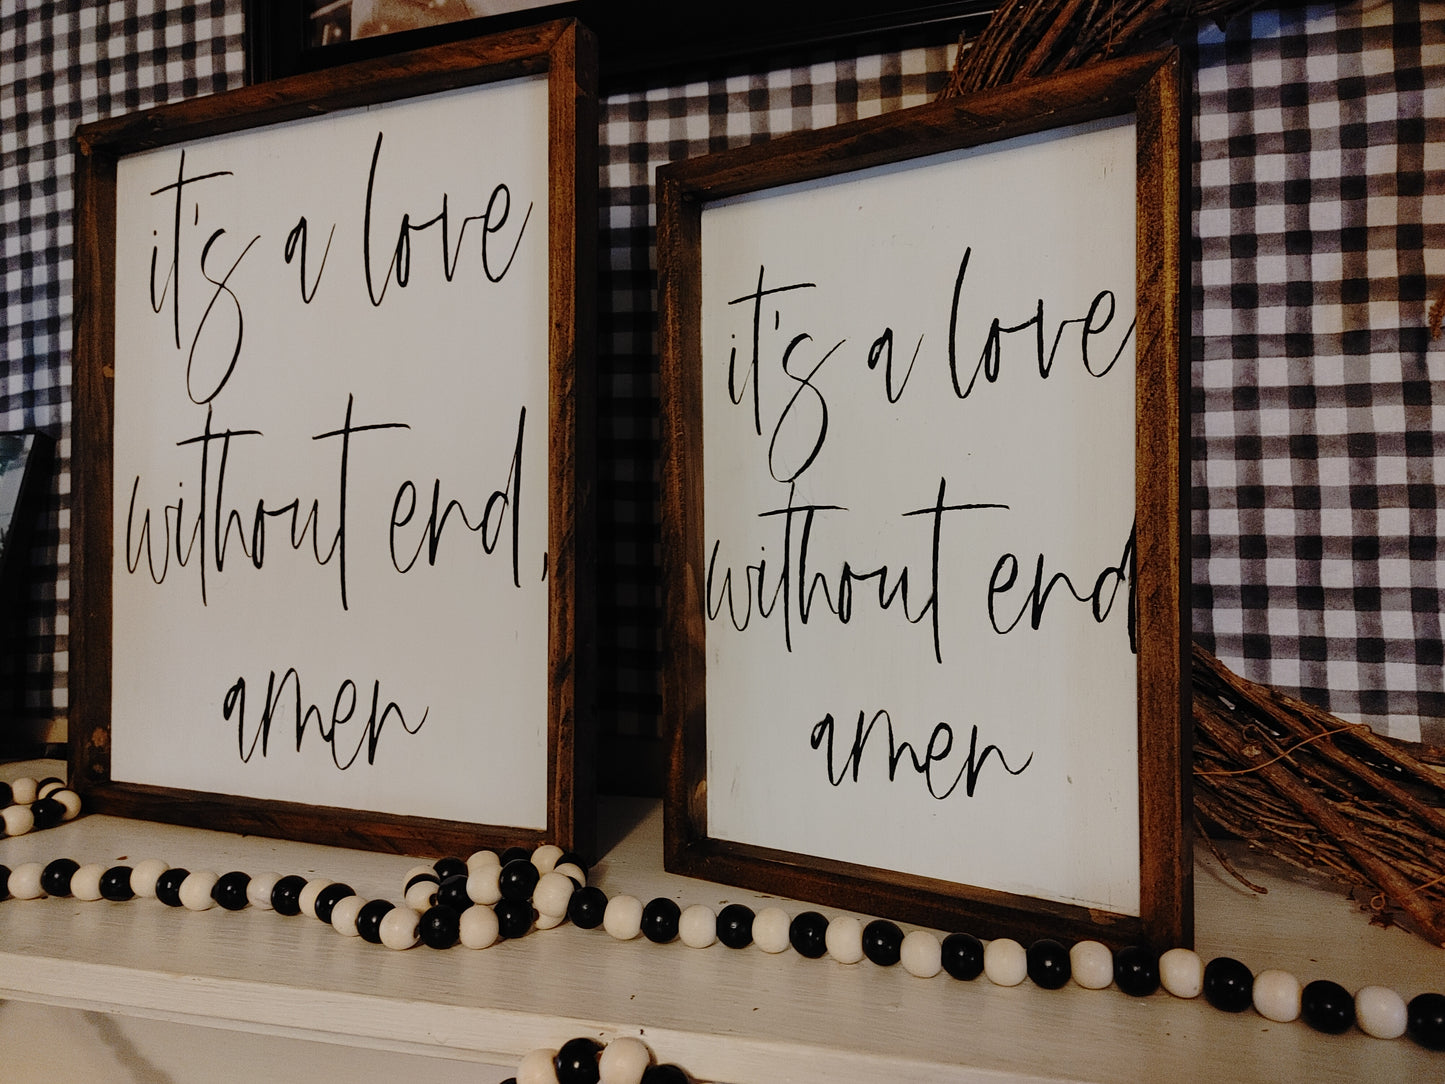 it's a love
without end,
amen
it's a love
without end
amen